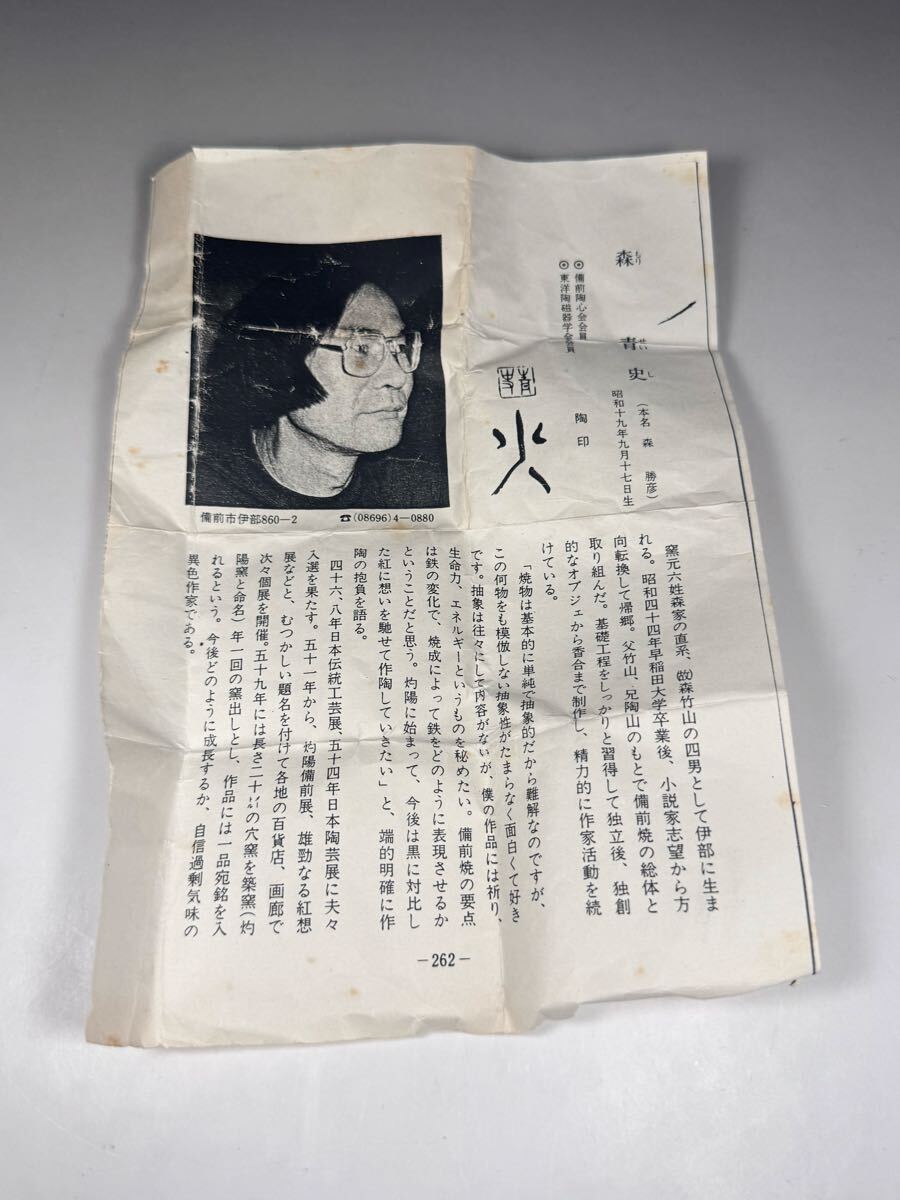 森　青史
もり　せい　し
（本名　森　勝彦）
昭和十九年九月十七日生
◎備前陶心会会員
◎東洋陶磁器学会会員
陶印
青史
備前市伊部860—2　☎(08696)4—0880
窯元六姓森家の直系、㊡森竹山の四男として伊部に生ま
れる。昭和四十四年早稲田大学卒業後、小説家志望から方
向転換して帰郷。父竹山、兄陶山のもとで備前焼の総体と
取り組んだ。基礎工程をしっかりと習得して独立後、独創
的なオブジェから香合まで制作し、精力的に作家活動を続
けている。
「焼物は基本的に単純で抽象的だから難解なのですが、
この何物をも模倣しない抽象性がたまらなく面白くて好き
です。抽象は往々にして内容がないが、僕の作品には祈り、
生命力、エネルギーというものを秘めたい。備前焼の要点
は鉄の変化で、焼成によって鉄をどのように表現させるか
ということだと思う。灼陽に始まって、今後は黒に対比し
た紅に想いを馳せて作陶していきたい」と、端的明確に作
陶の抱負を語る。
四十六、八年日本伝統工芸展、五十四年日本陶芸展に夫々
入選を果たす。五十一年から、灼陽備前展、雄勁なる紅想
展などと、むつかしい題名を付けて各地の百貨店、画廊で
次々個展を開催。五十九年には長さ二十㍍の穴窯を築窯（灼
陽窯と命名）年一回の窯出しとし、作品には一品宛銘を入
れるという。今後どのように成長するか、自信過剰気味の
異色作家である。
—262—